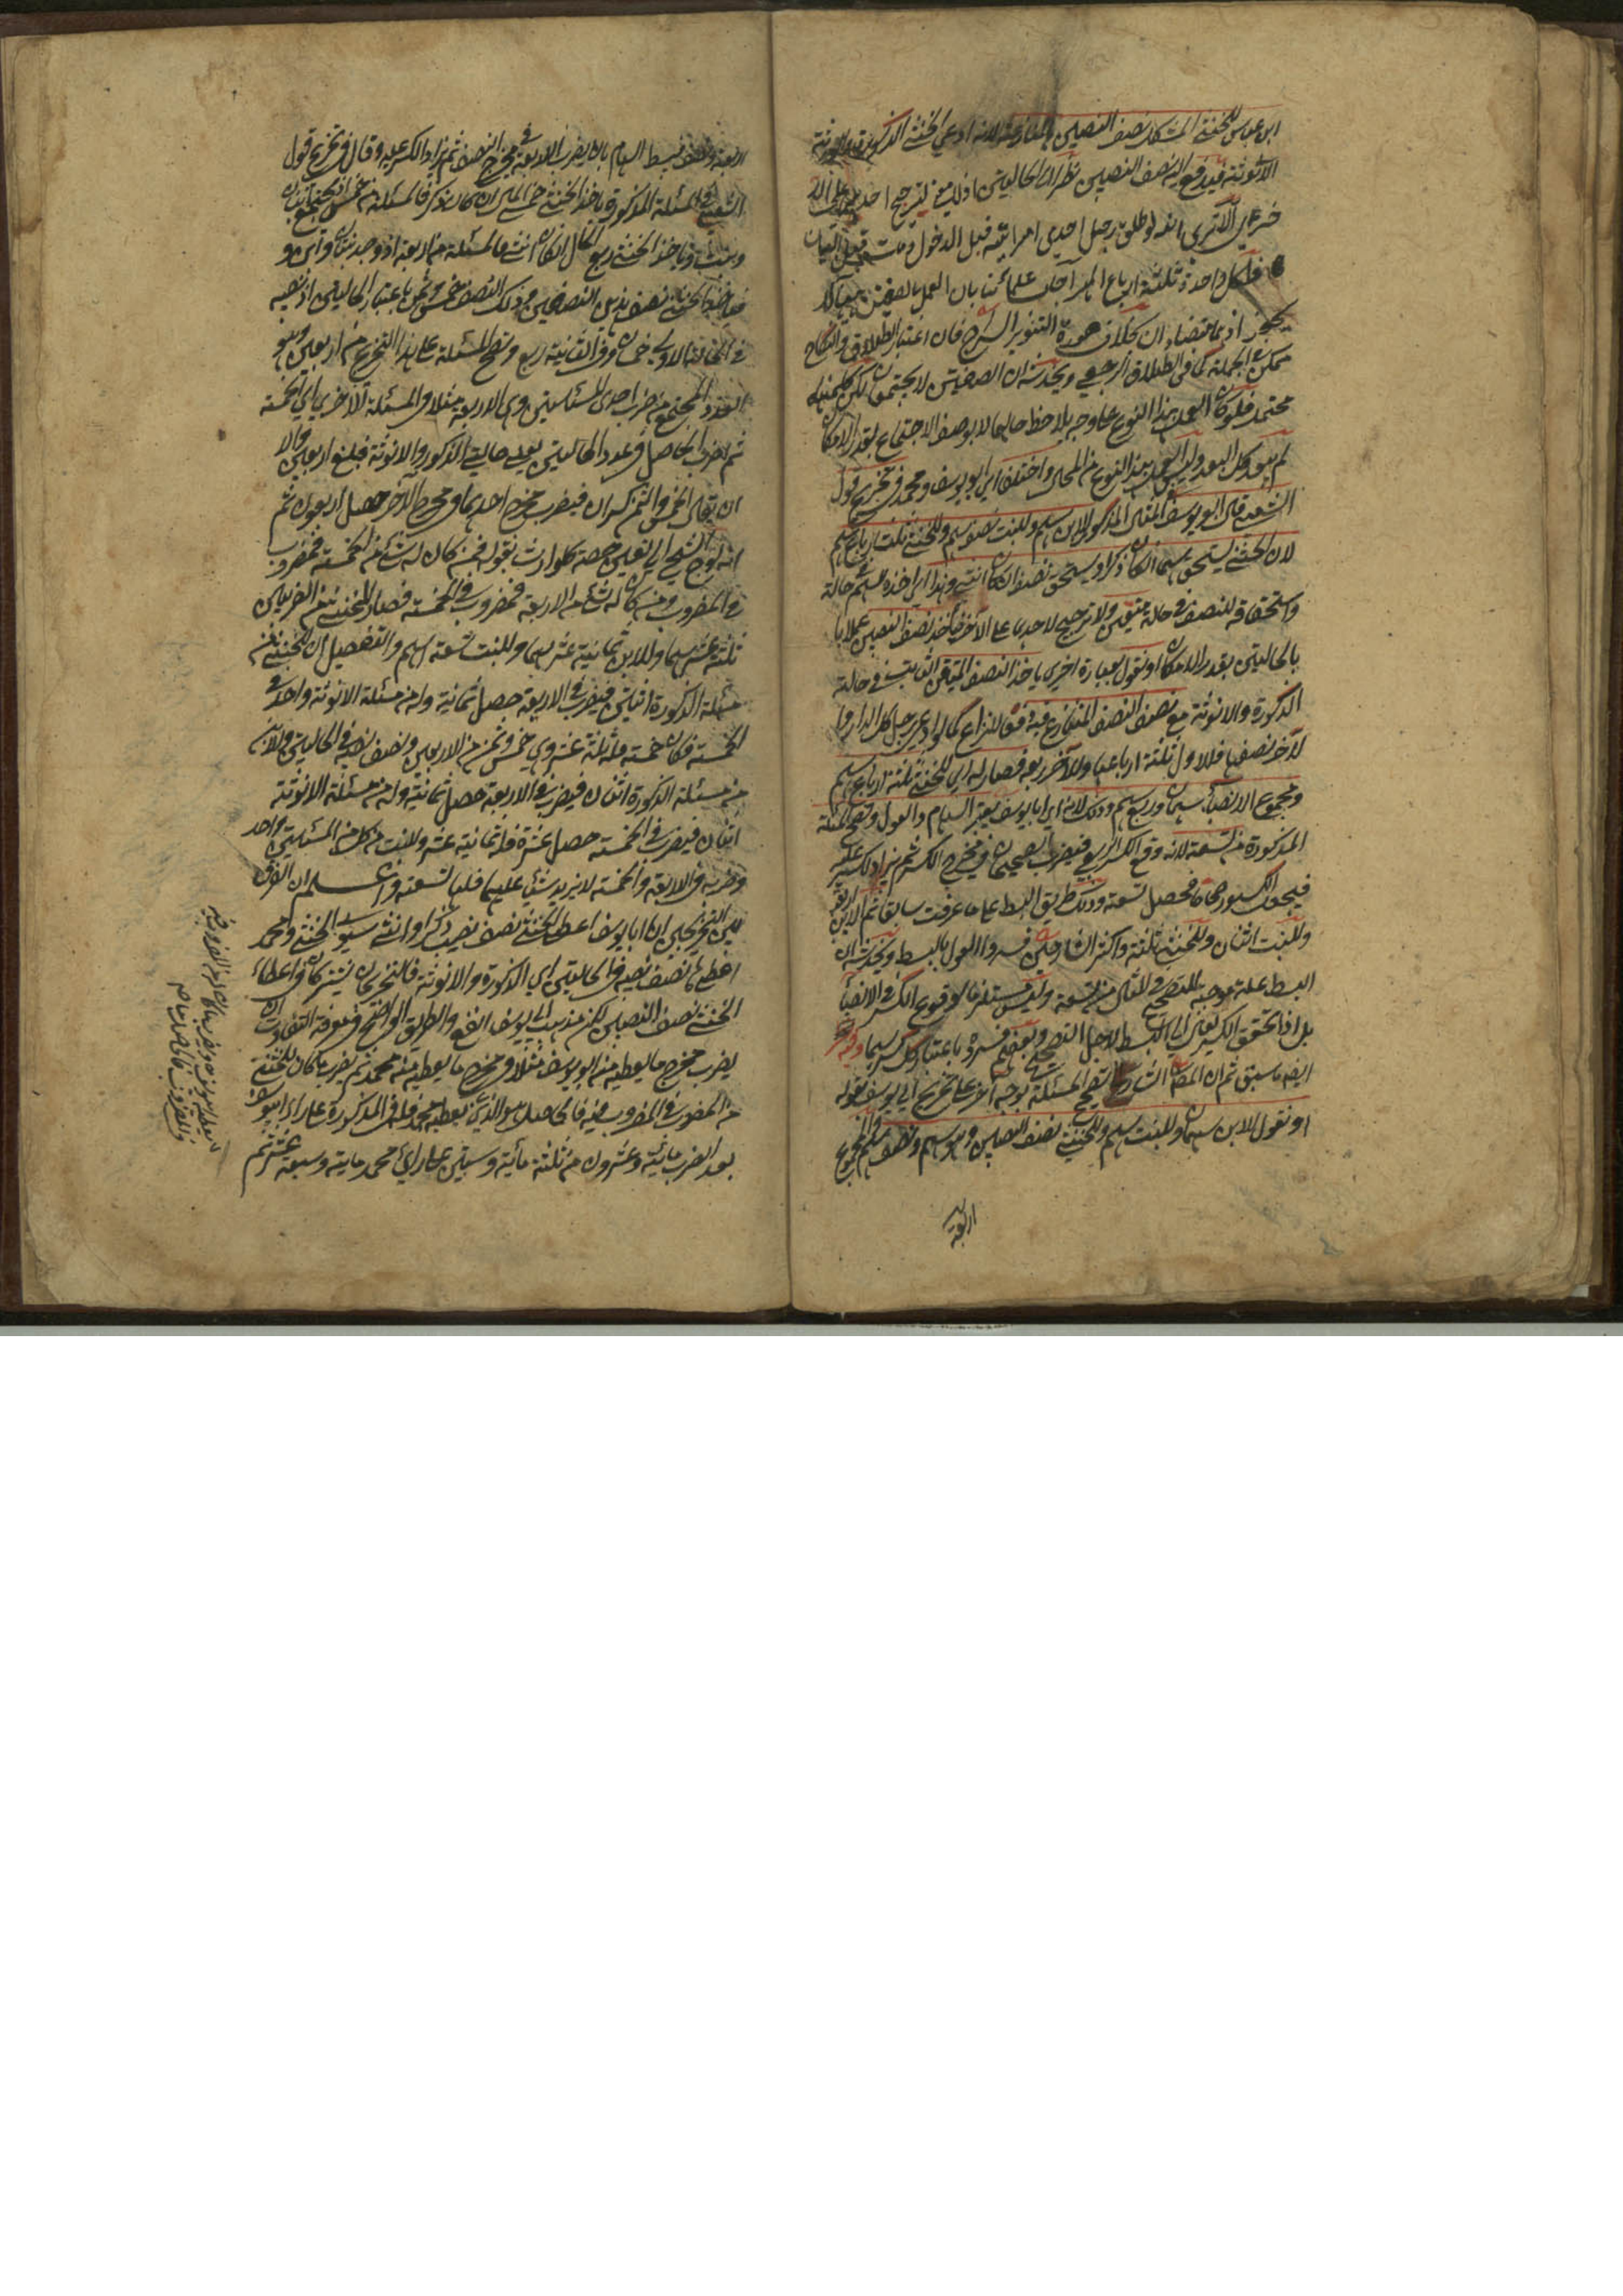 ابن عباس للخنثى المشكل نصف النصيبين بالمنازعة لانه ادعي الخنثى الذكورة والورثة
الانوثة فيدفع اليه نصف النصيبين نظرا الى الحالتين اذ لا يترجح احد
الا ترى انه لو طلق رجل احدى امرأتيه قبل الدخول ومات قبل البيان
فلكل واحدة ثلثة ارباع المهر اجاب علمائنا بان العمل بالصفتين
يجز اذ هما متضادان بخلاف صورة التنوير السراج فان اعتبار الطلاق والنكاح
ممكن في الجملة كما في الطلاق الرجعي ويخدشه ان الصفتين لا يجتمعان لكن كليهما
محتمل فلو كان العمل بهذا النوع على وجه يلاحظ حالهما لا بوصف الاجتماع بقدر الامكان
لم يبعد كل البعد وليس العمل بهذا النوع من المحال واختلفا اي ابو يوسف ومحمد في تخريج قول
الشعبي قال ابو يوسف في المثال المذكور للابن سهم وللبنت نصف سهم وللخنثى ثلث ارباع سهم
لان الخنثى يستحق سهما ان كان ذكرا ويستحق نصفا ان كان انثى وهذا اي اخذه السهم حالة
واستحقاقه للنصف في حالة متيقن ولا ترجيح لاحدهما على الاخر فيأخذ نصف النصيبين عملا
بالحالتين بقدر الامكان او نقول بعبارة اخرى ياخذ النصف المتيقن الثابت في حالة
الذكورة والانوثة مع نصف النصف المتنازع فيه قطعا للنزاع كما لو ادعى رجل كل الدار و
الآخر نصفها فللاول ثلثة ارباعها وللآخر ربعه فصار له اي للخنثى ثلثة ارباع سهم
ومجموع الانصباء سهمان وربع سهم وذلك لانه اي ابا يوسف يعتبر السهام والعول وتصح المسئلة
المذكورة من تسعة لانه وقع الكسر الربع فيضرب الصحيحان في مخرج الكسر ثم يزاد الكسر عليه
فيجعل الكسور صحاحا فحصل تسعة وذلك طريق البسط على ما عرفت سابقا ثم للابن اربعة
وللبنت اثنان وللخنثى ثلثة واكثر الشارحين فسروا العول بالبسط ويخدشه ان
البسط علة موجبة للتصحيح في المثال من تسعة وليس مستلزما لوقوع الكسر في الانصباء
بل اذا تحقق الكسر يعاد الى البسط لاجل التصحيح وبعضهم فسره باعتبار كل كسر سهما وفيه
ايضا ما سبق ثم ان المصنف اشار الى تصحيح المسئلة بوجه آخر على تخريج ابي يوسف بقوله
او نقول للابن سهمان وللبنت سهم وللخنثى نصف النصيبين وهو سهم ونصف سهم فالمجموع
اربعة
اربعة ونصف فبسط السهام بان يضرب الاربعة في مخرج النصف ثم يزاد الكسر عليه وقال في تخريج قول
الشعبي في المسئلة المذكورة ياخذ الخنثى خمسي المال ان كان ذكرا فالمسئلة من خمس
وبنت وياخذ الخنثى ربع المال ان كان انثى فالمسئلة من اربعة اذ وجد بنتان وابن
فياخذ الخنثى نصف هذين النصيبين وذلك النصف خمس وثمن باعتبار الحالتين اذ نصيبه
في الحالة الاولى خمسان وفي الثانية ربع وتصح المسئلة على هذا التخريج من اربعين وهو
العدد المجتمع من ضرب احدى المسئلتين وهي الاربعة مثلا في المسئلة الاخرى اي الخمسة
ثم ضرب الحاصل في عدد الحالتين يعني حالتي الذكورة والانوثة فبلغ اربعين
ان يقال الخمس والثمن كسران فيضرب مخرج احدهما في مخرج الاخر حصل اربعون ثم
انه توجه الشيخ الى تعيين حصة كل وارث بقوله فمن كان له شيء من الخمسة فمضروب
في الاربعة ومن كان له شيء من الاربعة فمضروب في الخمسة فصار للخنثى من الضربين
ثلثة عشر سهما وللابن ثمانية عشر سهما وللبنت تسعة اسهم والتفصيل ان للخنثى من
مسئلة الذكورة اثنين فيضرب في الاربعة حصل ثمانية وله من مسئلة الانوثة واحد في
الخمسة فكان خمسة فله ثلثة عشر وهي خمس وثمن من الاربعين ونصف نصيبه في الحالتين وللابن
من مسئلة الذكورة اثنان فيضرب في الاربعة حصل ثمانية وله من مسئلة الانوثة
اثنان فيضرب في الخمسة حصل عشرة فله ثمانية عشر وللبنت من كل من المسئلتين واحد
وضربه في الاربعة والخمسة لا يزيد شيئا عليهما فلها تسعة واعلم ان الفرق
بين التخريجين ان ابا يوسف اعطى الخنثى نصف نصيب ذكر وانثى سوى الخنثى ومحمد
اعطى له نصف نصيبه في الحالتين اي الذكورة والانوثة فالتخريجان يشتركان في اعطاء
الخنثى نصف النصيبين لكن مذهب ابي يوسف انفع والطريق الواضح في معرفة التفاوت ان
يضرب مخرج ما يعطيه منه ابو يوسف مثلا في مخرج ما يعطيه منه محمد ثم يضرب ما كان للخنثى
من المضروب في المضروب فيه فالحاصل هو الذي يعطيه محمد فله في المذكورة على رأي ابي يوسف
بعد الضرب مائة وعشرون من ثلثة مائة وستين على رأي محمد مائة وسبعة عشر ثم